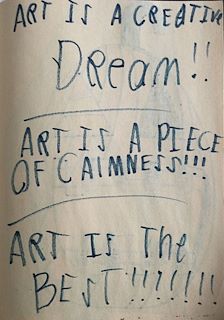 ART IS A CREATIVE
DREAM!!
ART IS A PIECE
OF CAlMNESS!!!
ART IS The
BEST!!!!!!!